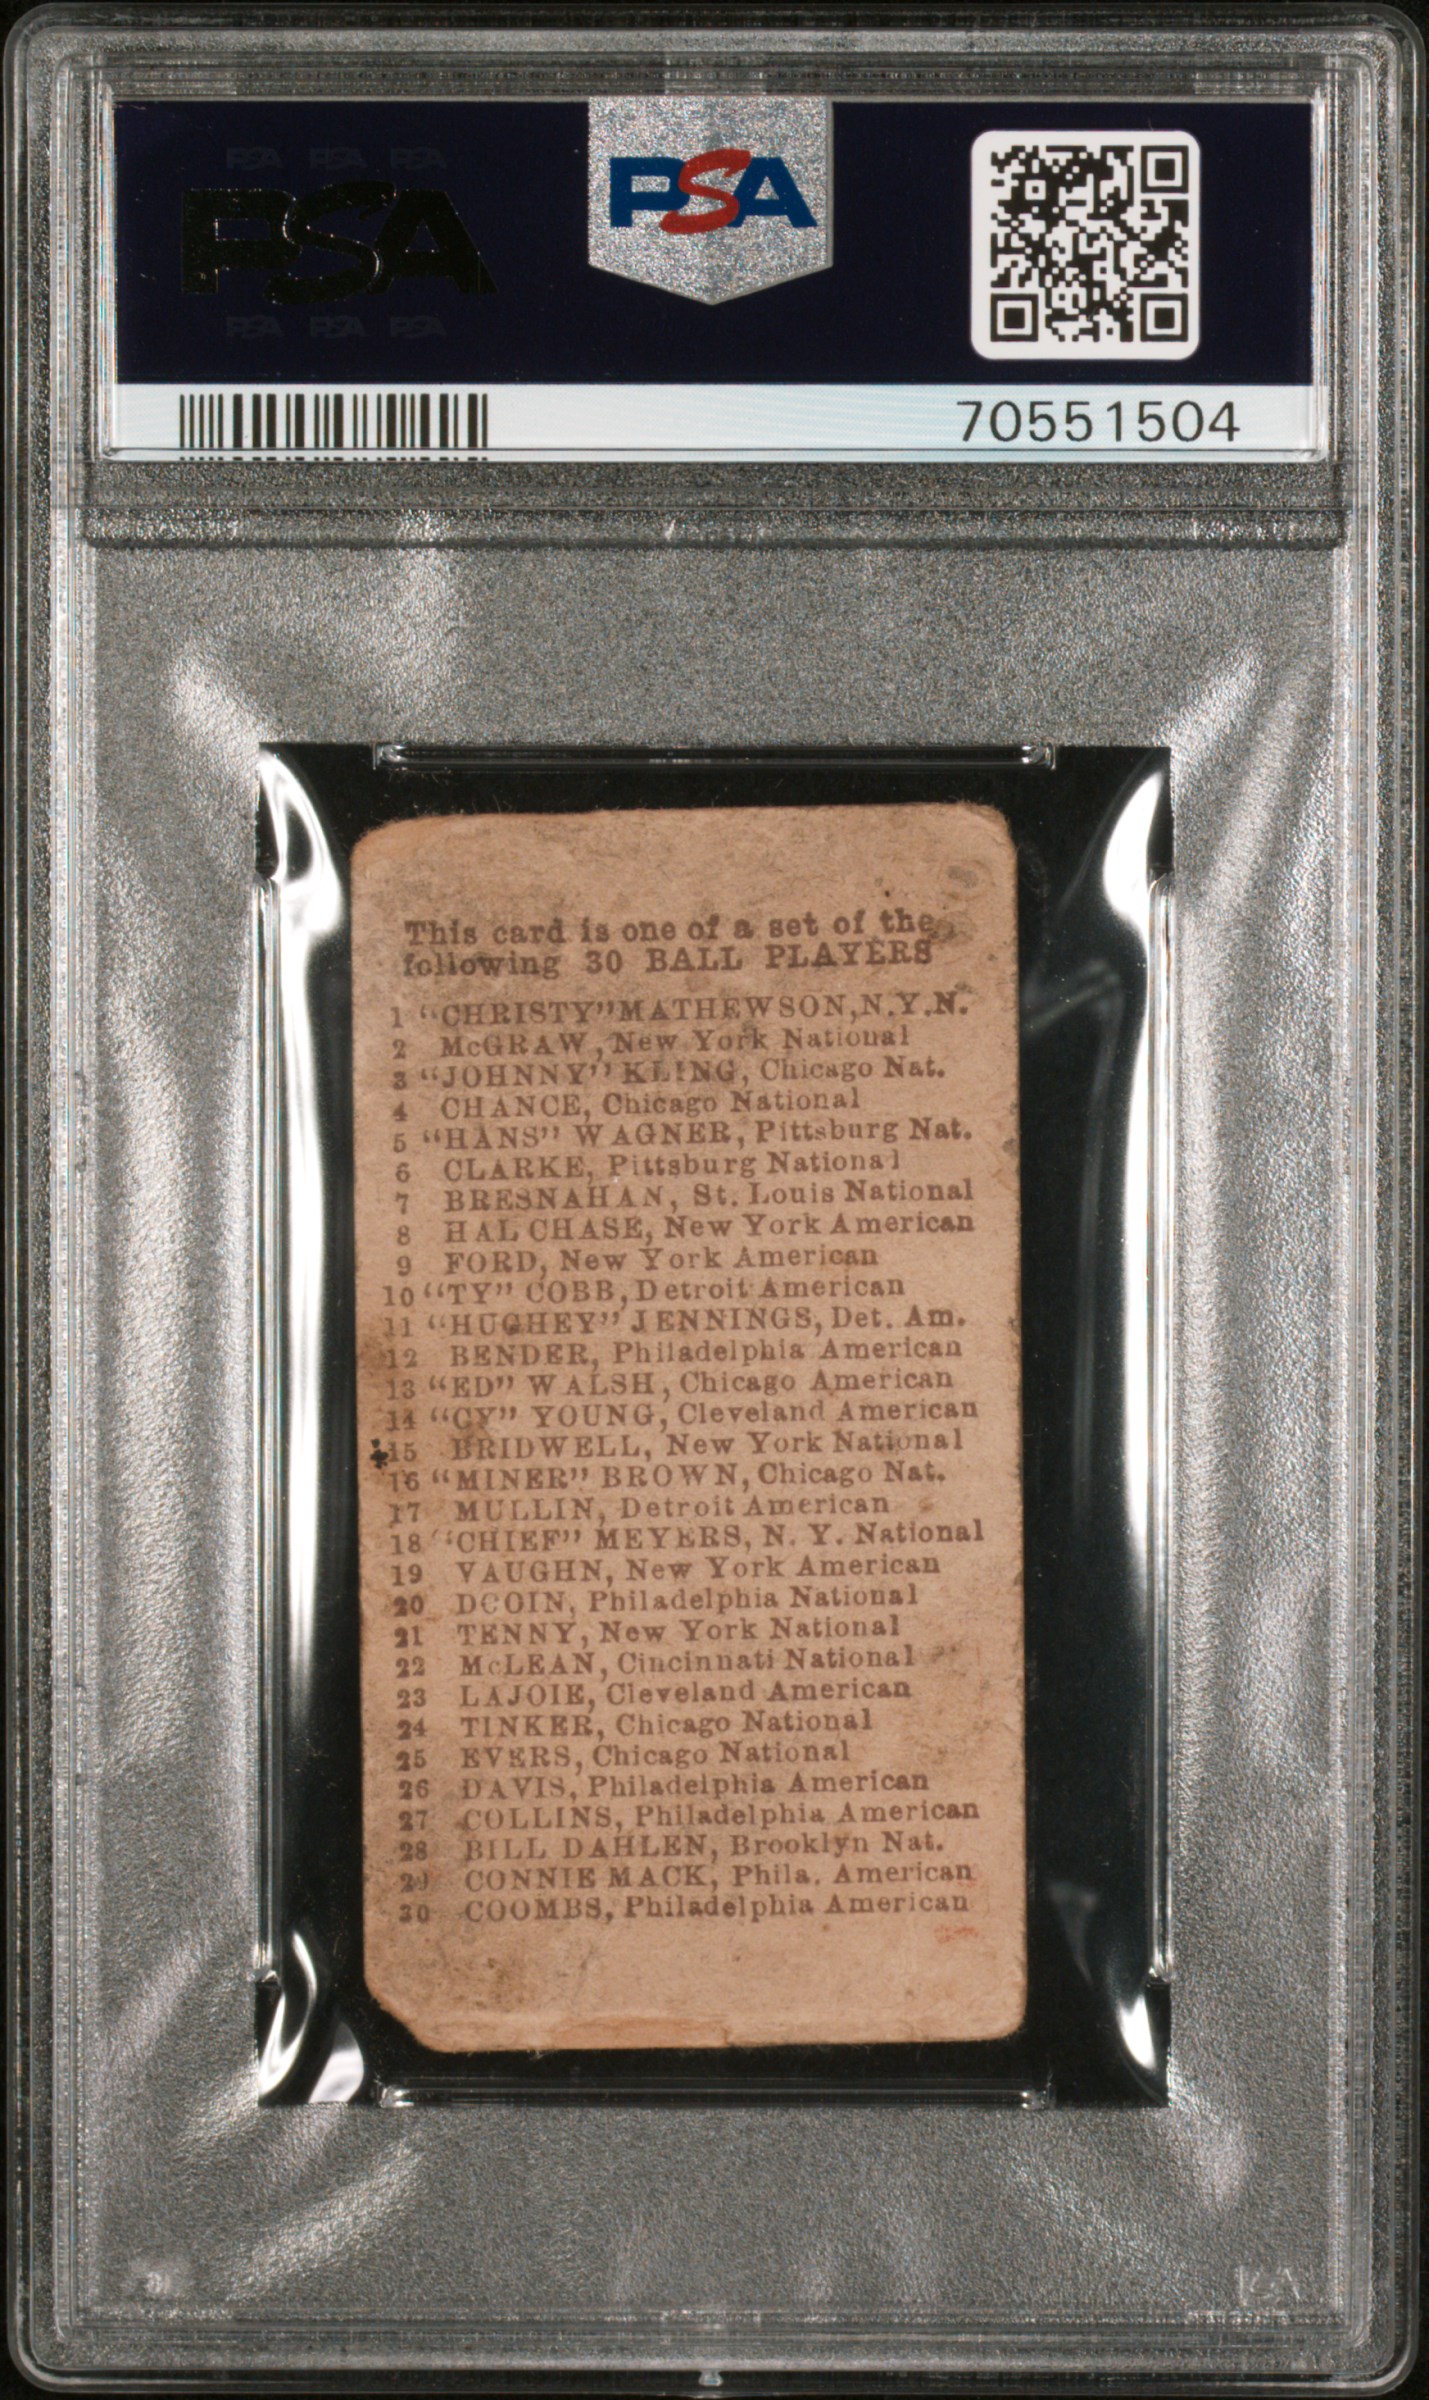 PSA PSA PSA
PSA
PSA PSA PSA
PSA
70551504
This card is one of a set of the
following 30 BALL PLAYERS
1 "CHRISTY" MATHEWSON, N.Y.N.
2 McGRAW, New York National
3 "JOHNNY" KLING, Chicago Nat.
4 CHANCE, Chicago National
5 "HANS" WAGNER, Pittsburg Nat.
6 CLARKE, Pittsburg National
7 BRESNAHAN, St. Louis National
8 HAL CHASE, New York American
9 FORD, New York American
10 "TY" COBB, Detroit American
11 "HUGHEY" JENNINGS, Det. Am.
12 BENDER, Philadelphia American
13 "ED" WALSH, Chicago American
14 "CY" YOUNG, Cleveland American
15 BRIDWELL, New York National
16 "MINER" BROWN, Chicago Nat.
17 MULLIN, Detroit American
18 "CHIEF" MEYERS, N. Y. National
19 VAUGHN, New York American
20 DCOIN, Philadelphia National
21 TENNY, New York National
22 McLEAN, Cincinnati National
23 LAJOIE, Cleveland American
24 TINKER, Chicago National
25 EVERS, Chicago National
26 DAVIS, Philadelphia American
27 COLLINS, Philadelphia American
28 BILL DAHLEN, Brooklyn Nat.
29 CONNIE MACK, Phila. American
30 COOMBS, Philadelphia American
PSA